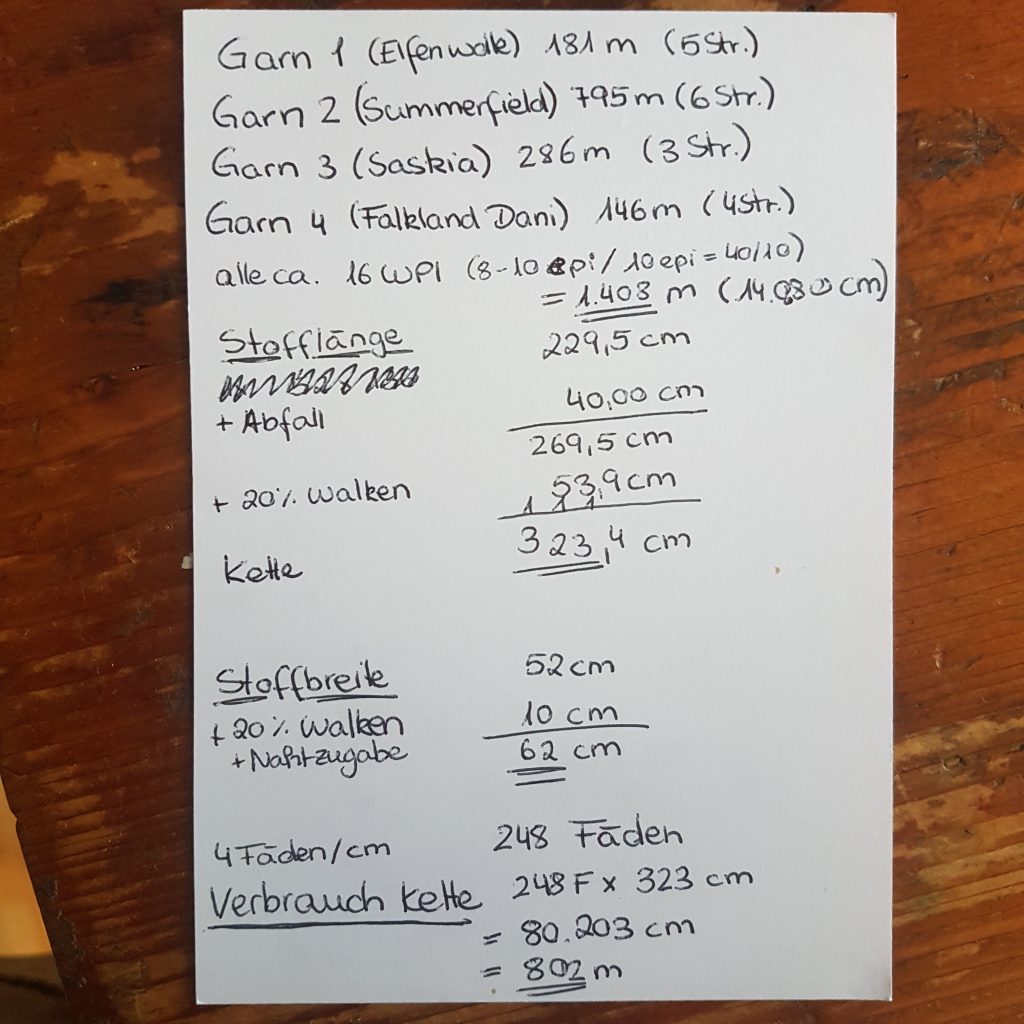 Garn 1 (Elfenwolle) 181 m (5 Str.)
Garn 2 (Summerfield) 795 m (6 Str.)
Garn 3 (Saskia) 286 m (3 Str.)
Garn 4 (Falkland Dani) 146 m (4 Str.)
alle ca. 16 WPI (8-10 epi / 10 epi = 40/10)
= 1.408 m (14.080 cm)
Stofflänge 229,5 cm
+ Abfall 40,00 cm
269,5 cm
+ 20% Walken 53,9 cm
1 1 1
Kette 323,4 cm
Stoffbreite 52 cm
+ 20% Walken 10 cm
+ Nahtzugabe 62 cm
4 Fäden/cm 248 Fäden
Verbrauch Kette 248 F x 323 cm
= 80.203 cm
= 802 m